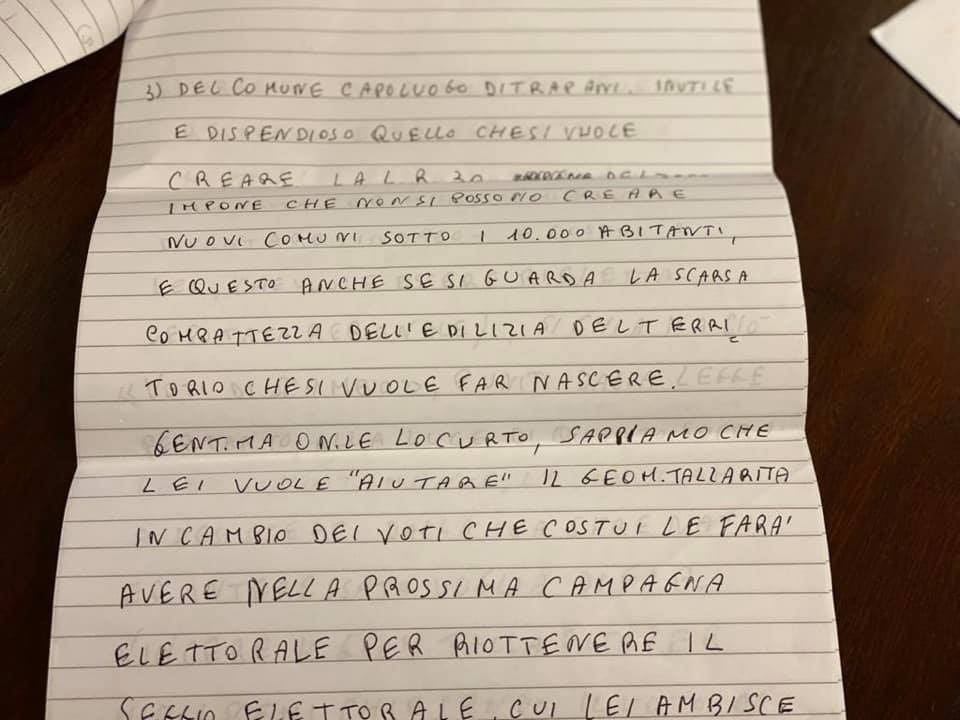 3) DEL COMUNE CAPOLUOGO DI TRAPANI. INUTILE
E DISPENDIOSO QUELLO CHE SI VUOLE
CREARE LA L.R. 30 DEL
IMPONE CHE NON SI POSSONO CREARE
NUOVI COMUNI SOTTO I 10.000 ABITANTI,
E QUESTO ANCHE SE SI GUARDA LA SCARSA
COMPATTEZZA DELL'EDILIZIA DEL TERRI
TORIO CHE SI VUOLE FAR NASCERE.
GENT.MA ON.LE LO CURTO, SAPPIAMO CHE
LEI VUOLE "AIUTARE" IL GEOM. TALLARITA
IN CAMBIO DEI VOTI CHE COSTUI LE FARA'
AVERE NELLA PROSSIMA CAMPAGNA
ELETTORALE PER RIOTTENERE IL
SEGGIO ELETTORALE, CUI LEI AMBISCE